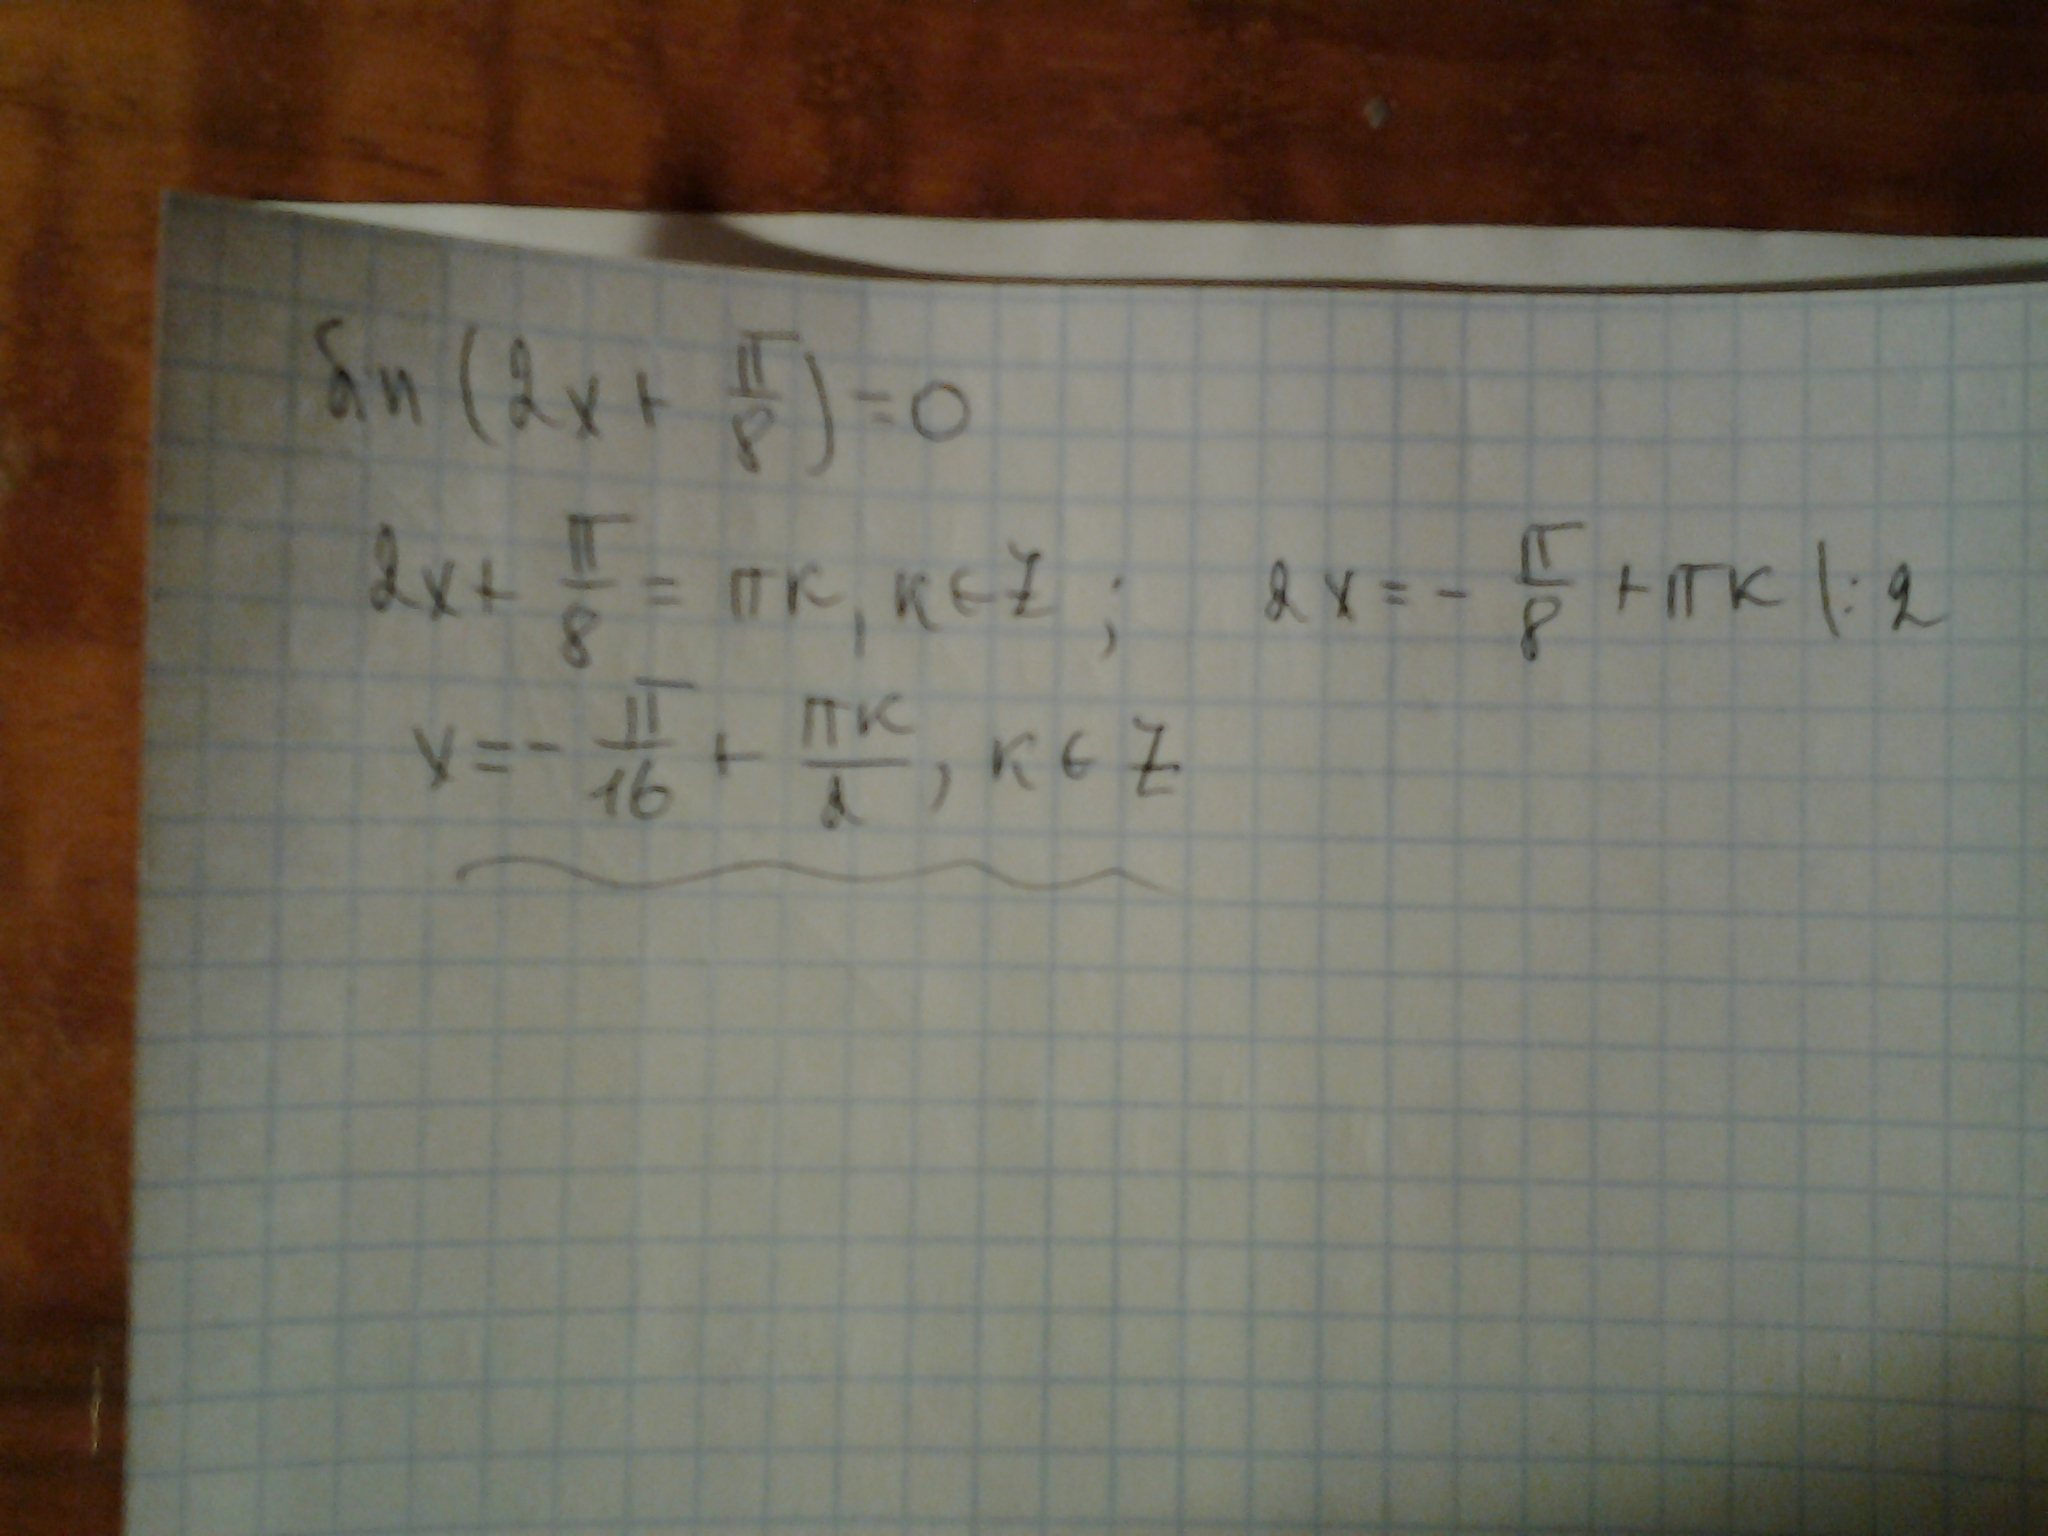 sin (2x + π/8) = 0
2x + π/8 = πк, к ∈ Z ; 2x = - π/8 + πк |: 2
x = - π/16 + πк/2, к ∈ Z